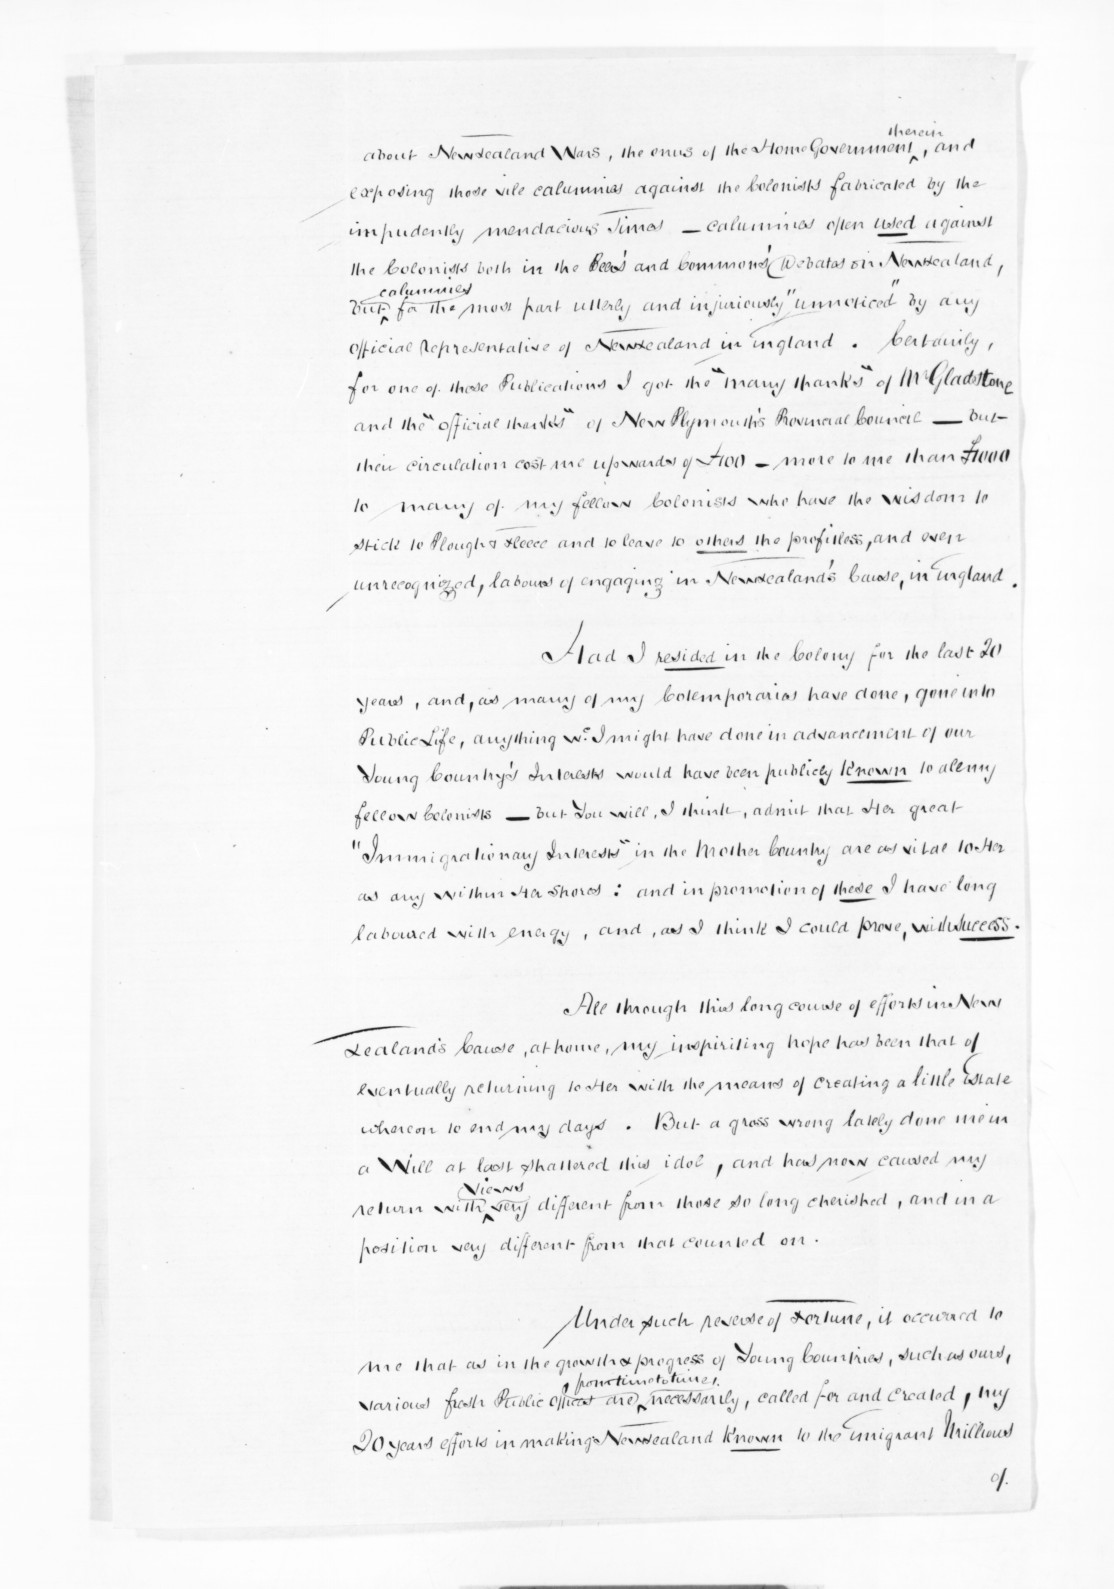 about New Zealand Wars, the onus of the Home Government therein, and
exposing those vile calumnies against the Colonists fabricated by the
impudently mendacious Times — calumnies often used against
the Colonists both in the Peer's and Common's (Debates on New Zealand,
but calumnies for the most part utterly and injuriously "unnoticed" by any
official representative of New Zealand in England. Certainly,
for one of these Publications I got the "many thanks" of Mr Gladstone
and the "official thanks" of New Plymouth's Provincial Council — but
their circulation cost me upwards of £100 — more to me than £1000
to many of my fellow Colonists who have the wisdom to
stick to Plough & Fleece and to leave to others the profitless, and even
unrecognized, labours of engaging in New Zealand's Cause, in England.
Had I resided in the Colony for the last 20
years, and, as many of my Cotemporaries have done, gone into
Public Life, anything wc. I might have done in advancement of our
Young Country's Interests would have been publicly known to all my
fellow Colonists — but You will, I think, admit that Her great
"Immigrationary Interests" in the Mother Country are as vital to Her
as any within Her Shores: and in promotion of these I have long
laboured with energy, and, as I think I could prove, with success.
All through this long course of efforts in New
Zealand's Cause, at home, my inspiriting hope has been that of
eventually returning to Her with the means of creating a little Estate
whereon to end my days. But a gross wrong lately done me in
a Will at last shattered this idol, and has now caused my
return with views very different from those so long cherished, and in a
position very different from that counted on.
Under such reverse of Fortune, it occurred to
me that as in the growth & progress of Young Countries, such as ours,
various fresh Public offices are, from time to time, necessarily, called for and created, my
20 years efforts in making New Zealand known to the Emigrant Millions
of.